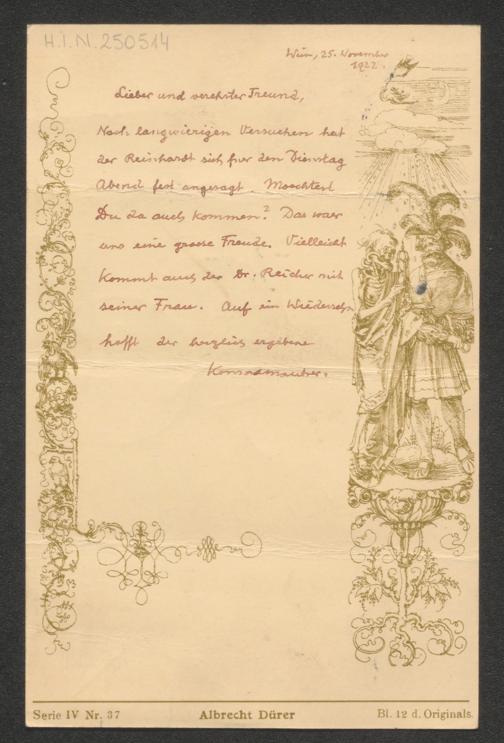 H.I.N. 250514
Wien, 25. November
1922.
Lieber und verehrter Freund,
Nach langwierigen Versuchen hat
der Reinhardt sich fuer den Dienstag
Abend fest angesagt. Moechtest
Du da auch kommen? Das waer
uns eine grosse Freude. Vielleicht
kommt auch der Dr. Reicher mit
seiner Frau. Auf ein Wiedersehn
hofft der herzlich ergebene
Serie IV Nr. 37
Albrecht Dürer
Bl. 12 d. Originals.